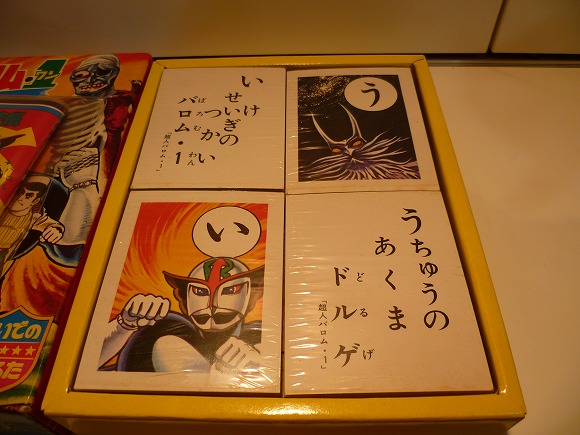 いけ
せいぎの
つかい
バロム・1
ばろむ わん
「超人バロム・1」
う
い
うちゅうの
あくま
ドルゲ
どるげ
「超人バロム・1」
ム・1
ワン
いでの